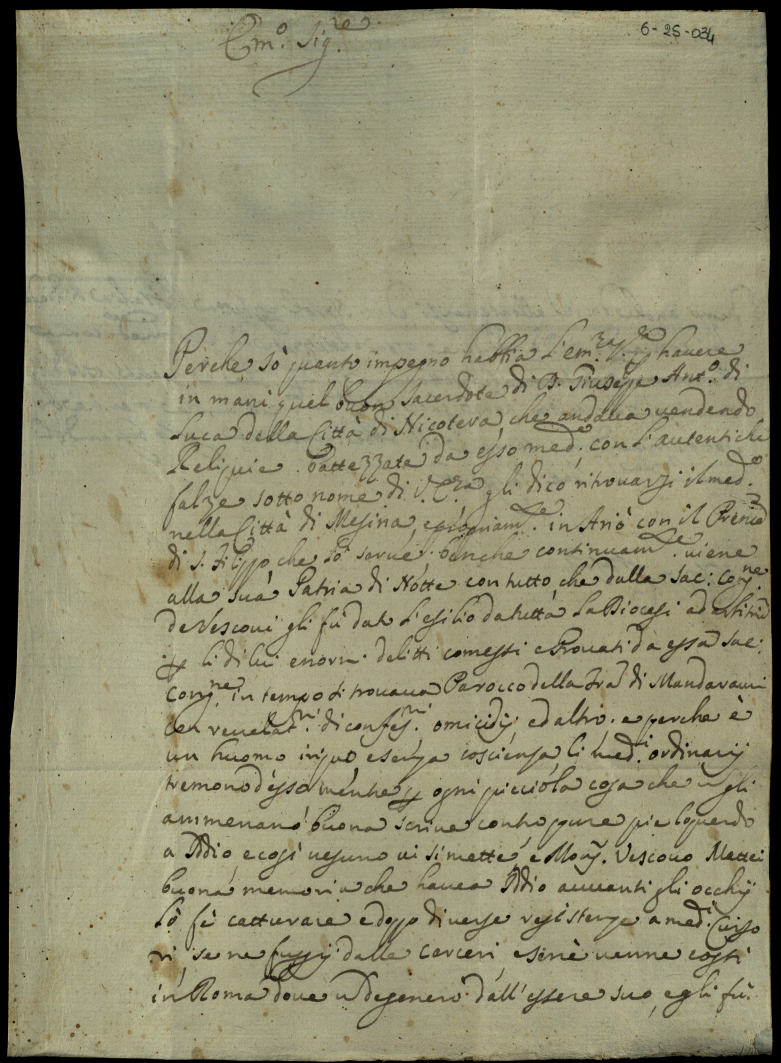 6-25-034
Em.º Sig.re
Perche sò quanto impegno habbia L'em.za V. havere
in mani quel buon Sacerdote di D. Giuseppe Ant.º di
Luca della Città di Nicotera, che andava vendendo
Reliquie battezzate da esso med.º con L'autentiche
falze sotto nome di V. Em.za gli dico ritrovarsi il med.º
nella Città di Mesina, e in Ariò con il
di S. Filippo che Lo serve benche continuam.te viene
alla sua Patria di Notte con tutto che dalla Sac: Cong.ne
de Vescovi gli fù dato L'esilio da tutta La Diocesi
p li di lui enormi delitti comessi e Provati da essa Sac:
Cong.ne in tempo si trovava Parocco della Tra di Mandaravini
con revelat.ni di confes.ni omicidij ed altro. e perche è
un huomo iniquo e senza coscienza li med.i ordinarij
tremono d'esso mentre p ogni picciola cosa che n gli
ammenano buona scrive contro pure pie
a Addio e così nesuno vi si mette, e Mons. Vescovo Mattei
buona memoria che havea Iddio avvanti gli occhij
Lo fè catturare e doppo diverse resistenze a med.i Curso
ri, se ne fuggì dalle carceri e senè venne costì
in Roma dove n degenerò dall'essere suo, egli fù